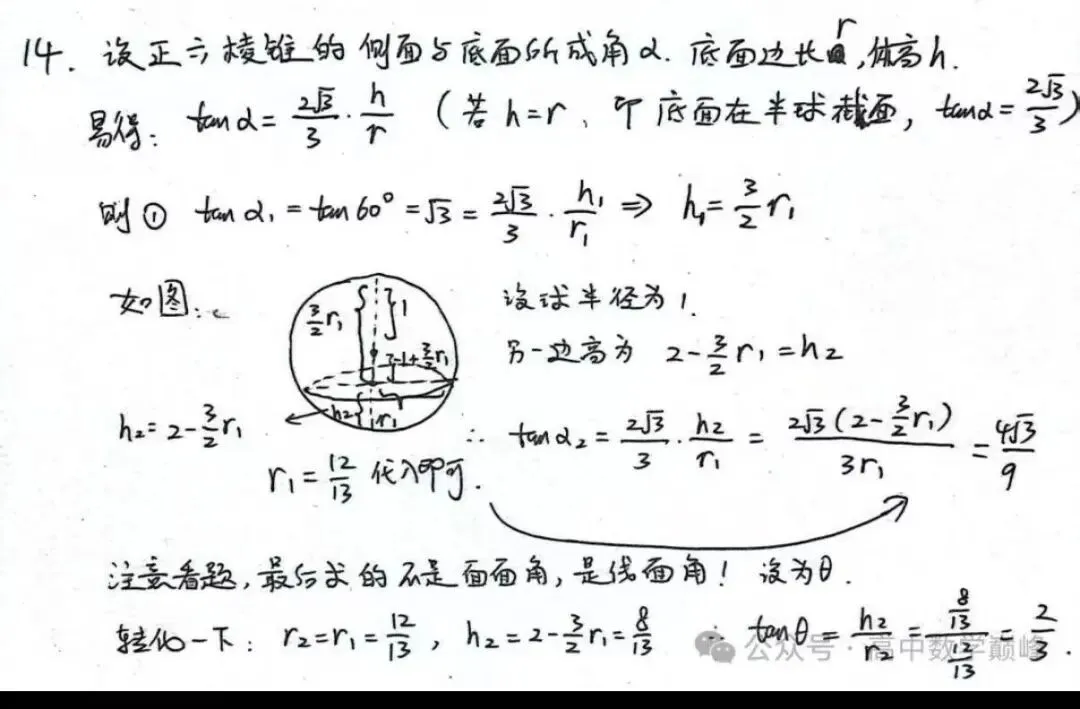 14. 设正六棱锥的侧面与底面所成角α. 底面边长r, 体高h.
易得: tanα = 2√3/3 · h/r (若h=r, 即底面在半球截面, tanα = 2√3/3)
则① tanα₁ = tan60° = √3 = 2√3/3 · h₁/r₁ ⇒ h₁ = 3/2 r₁
如图:
3/2 r₁
1
-1+3/2 r₁
h₂
r₁
设球半径为1.
另一边高为 2-3/2 r₁ = h₂
h₂ = 2-3/2 r₁
∴ tanα₂ = 2√3/3 · h₂/r₁ = 2√3(2-3/2 r₁)/3r₁ = 4√3/9
r₁ = 12/13 代入即可.
注意看题, 最后求的不是面面角, 是线面角! 设为θ.
转化一下: r₂=r₁=12/13, h₂=2-3/2 r₁=8/13 ∴ tanθ = h₂/r₂ = (8/13)/(12/13) = 2/3.
公众号·高中数学巅峰